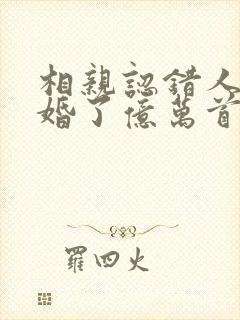 相親認錯人
婚了億萬首
羅四火